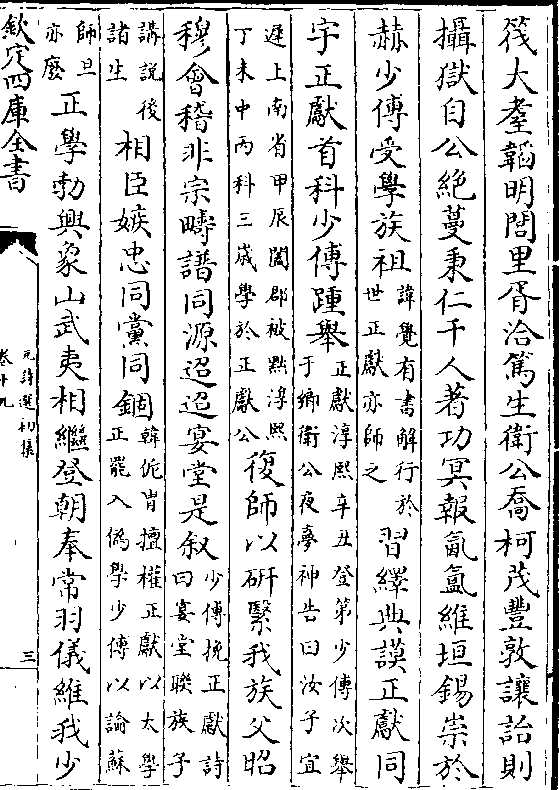 筏大耋韜明閭里胥洽篤生衛公喬柯茂豐敦讓詒則
攝獄自公絶蔓秉仁千人著功冥報氤氳維垣錫崇於
赫少傅受學族祖諱覺有書解行於世正獻亦師之習繹典謨正獻同
宇正獻首科少傅踵舉正獻淳熙辛丑登第少傅次舉于鄉衛公夜夢神告曰汝子宜
遲上南省甲辰闔郡被黜淳熙丁未中丙科三歳學於正獻公復師以研緊我族父昭
穆會稽非宗疇譜同源迢迢宴堂是叙少傅挽正獻詩曰宴堂聫族子
講説後諸生相臣嫉忠同黨同錮韓侂胄擅權正獻以太學正罷入僞學少傅以論蘇
師旦亦廢正學勃興象山武夷相繼登朝奉常羽儀維我少
欽定四庫全書
元詩選初集
卷十九
三